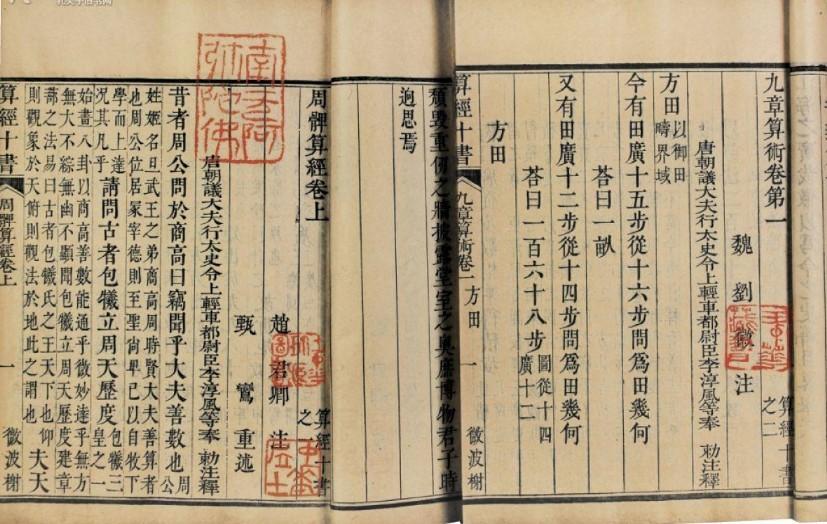 九章算術卷第一
算經十書之二
魏 劉徽 注
唐朝議大夫行太史令上輕車都尉臣李淳風等奉 勅注釋
方田以御田疇界域
今有田廣十五步從十六步問爲田幾何
荅曰一畝
又有田廣十二步從十四步問爲田幾何
荅曰一百六十八步圖從十四廣十二
方田
算經十書 九章算術卷一 方田 一 微波榭
頹毁重仞之牆披露堂室之奥庶博物君子時
迥思焉
南无阿弥陀佛
周髀算經卷上
算經十書之一
趙君卿 注
甄鸞 重述
唐朝議大夫行太史令上輕車都尉臣李淳風等奉 勅注釋
昔者周公問於商高曰竊聞乎大夫善數也周公
姓姬名旦武王之弟商高周時賢大夫善算者
也周公位居冢宰德則至聖尚卑己以自牧下
學而上達況其凡乎請問古者包犧立周天歷度包犧三皇之一
始畫八卦以商高善數能通乎微妙達乎無方
無大不綜無幽不顯聞包犧立周天歷度建章
蔀之法易曰古者包犧氏之王天下也仰
則觀象於天俯則觀法於地此之謂也夫天
算經十書 周髀算經卷上 一 微波榭